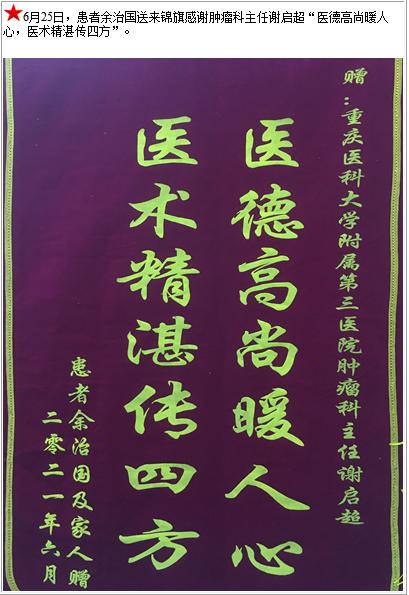 6月25日，患者余治国送来锦旗感谢肿瘤科主任谢启超“医德高尚暖人
心，医术精湛传四方”。
赠：重庆医科大学附属第三医院肿瘤科主任谢启超
医德高尚暖人心
医术精湛传四方
患者余治国及家人赠
二零二一年六月